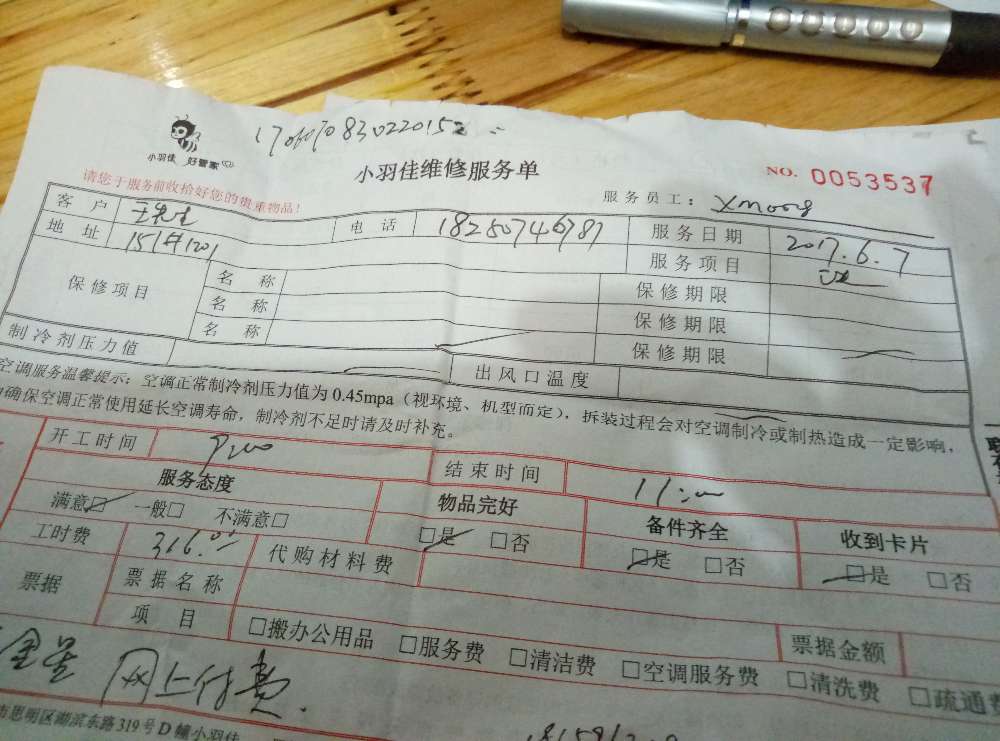 小羽佳 好管家
小羽佳维修服务单
NO. 0053537
请您于服务前收拾好您的贵重物品!
服务员工:
客户 王先生 电话 18250746787 服务日期 2017.6.7
地址 服务项目
保修项目 名称 保修期限
名称 保修期限
名称 保修期限
制冷剂压力值 出风口温度
空调服务温馨提示:空调正常制冷剂压力值为0.45mpa(视环境、机型而定),拆装过程会对空调制冷或制热造成一定影响,
确保空调正常使用延长空调寿命,制冷剂不足时请及时补充。
开工时间 结束时间 11:00
服务态度 物品完好 备件齐全 收到卡片
满意□ 一般□ 不满意□ □是 □否 □是 □否 □是 □否
工时费 316.00 代购材料费
票据 票据名称 票据金额
项目 □搬办公用品 □服务费 □清洁费 □空调服务费 □清洗费 □疏通费
网上付费.
市思明区湖滨东路319号D幢小羽佳